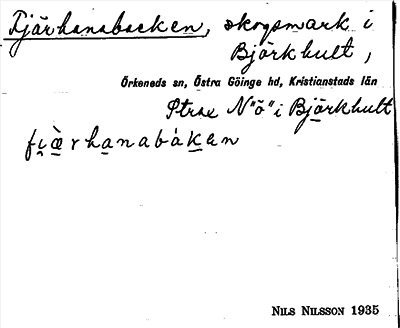 Tjärhanabacken, skogsmark i
Björkhult,
Örkeneds sn, Östra Göinge hd, Kristianstads län
Strax N"ö" i Björkhult
fi̯æ̀rhanabákan
NILS NILSSON 1935